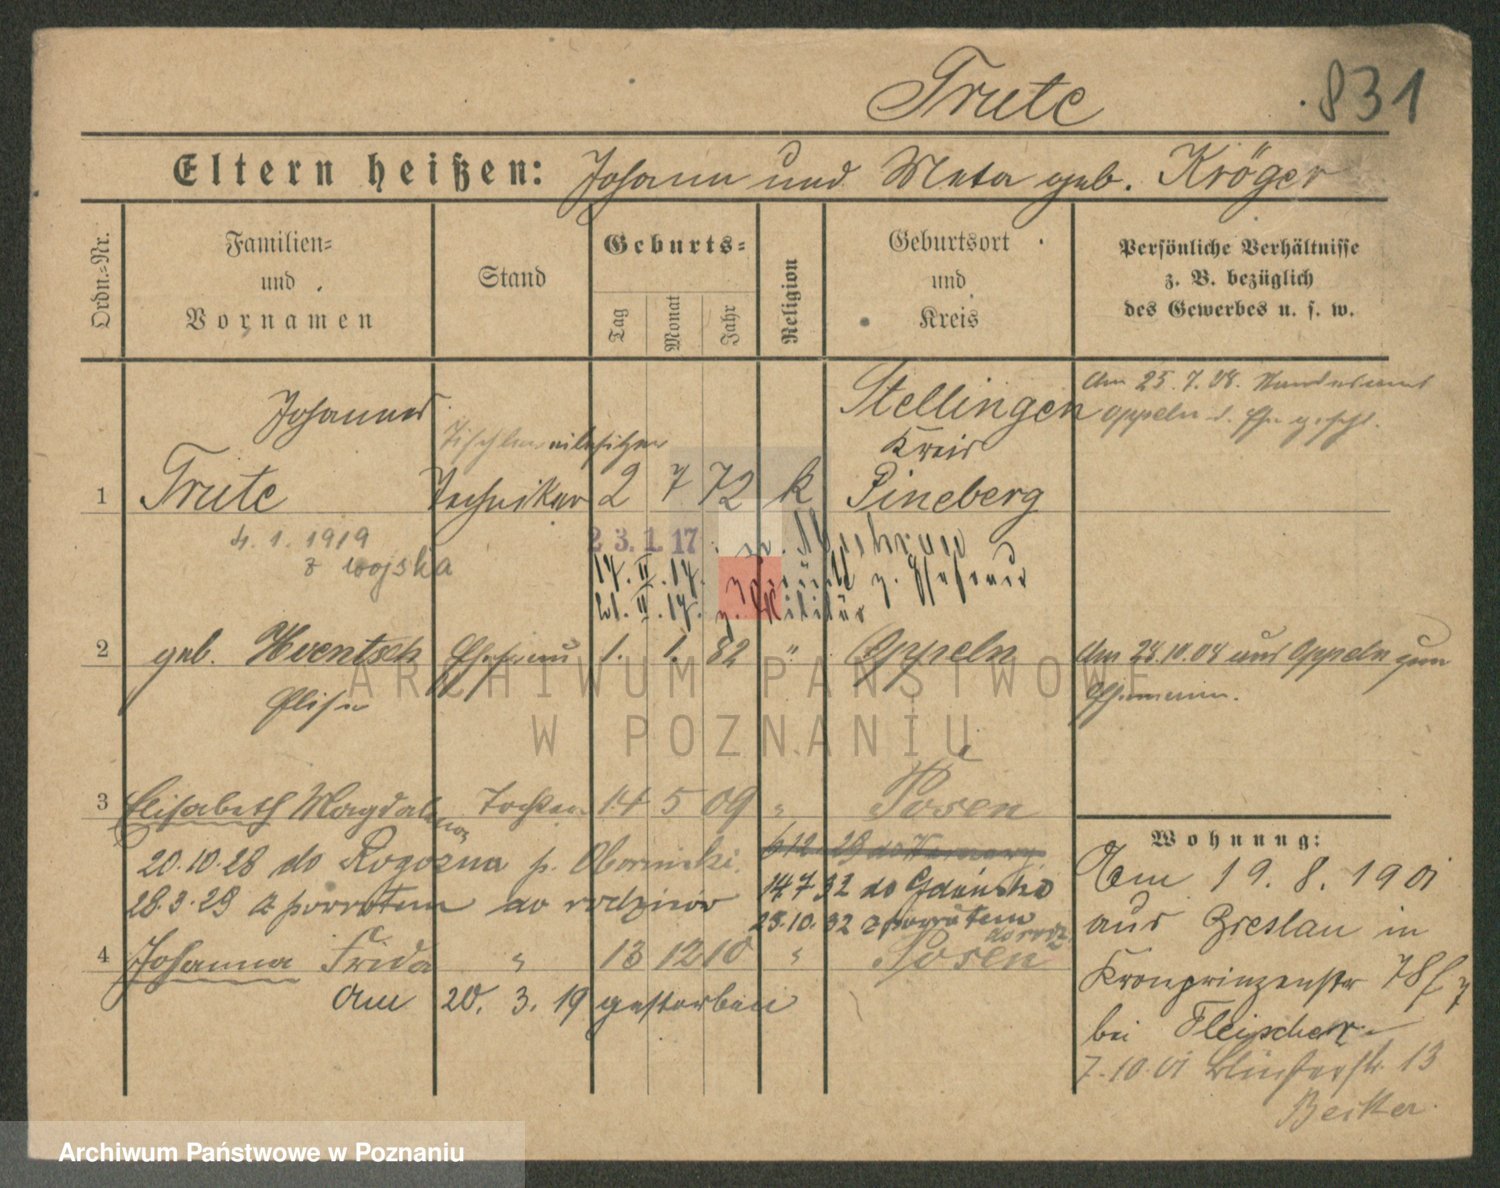 Trute
831
Eltern heißen: Johann und Meta geb. Kröger
Ordn.-Nr.
Familien-
und
Vornamen
Stand
Geburts-
Tag
Monat
Jahr
Religion
Geburtsort
und
Kreis
Persönliche Verhältnisse
z. B. bezüglich
des Gewerbes u. s. w.
Johannes
Stellingen
Kreis
Am 25. 7. 08. Standesamt
Oppeln
1 Trute Techniker 2 7 72 k Pineberg
4. 1. 1919
z wojska
23.1.17
17. II. 17. zurück
21. II. 17. z. Militär
2 geb. Ehefrau 1. 1. 82 " Oppeln
Elise
Am 28.10.08 aus Oppeln zum
ARCHIWUM PAŃSTWOWE
W POZNANIU
3 Elisabeth Magdalena Tochter 14 5 09 " Posen
20.10.28 do Rogozna p. Obornicki.
28.3.29 z powrotem do rodziców
14 7 32 do Gdańska
25.10.32 z powrotem
do rodz.
4 Johanna Frida " 13 12 10 " Posen
am 20. 3. 19 gestorben
Wohnung:
Am 19. 8. 1901
aus Breslau in
Kronprinzenstr 78
bei Fleischer
7.10.01 13
Becker
Archiwum Państwowe w Poznaniu